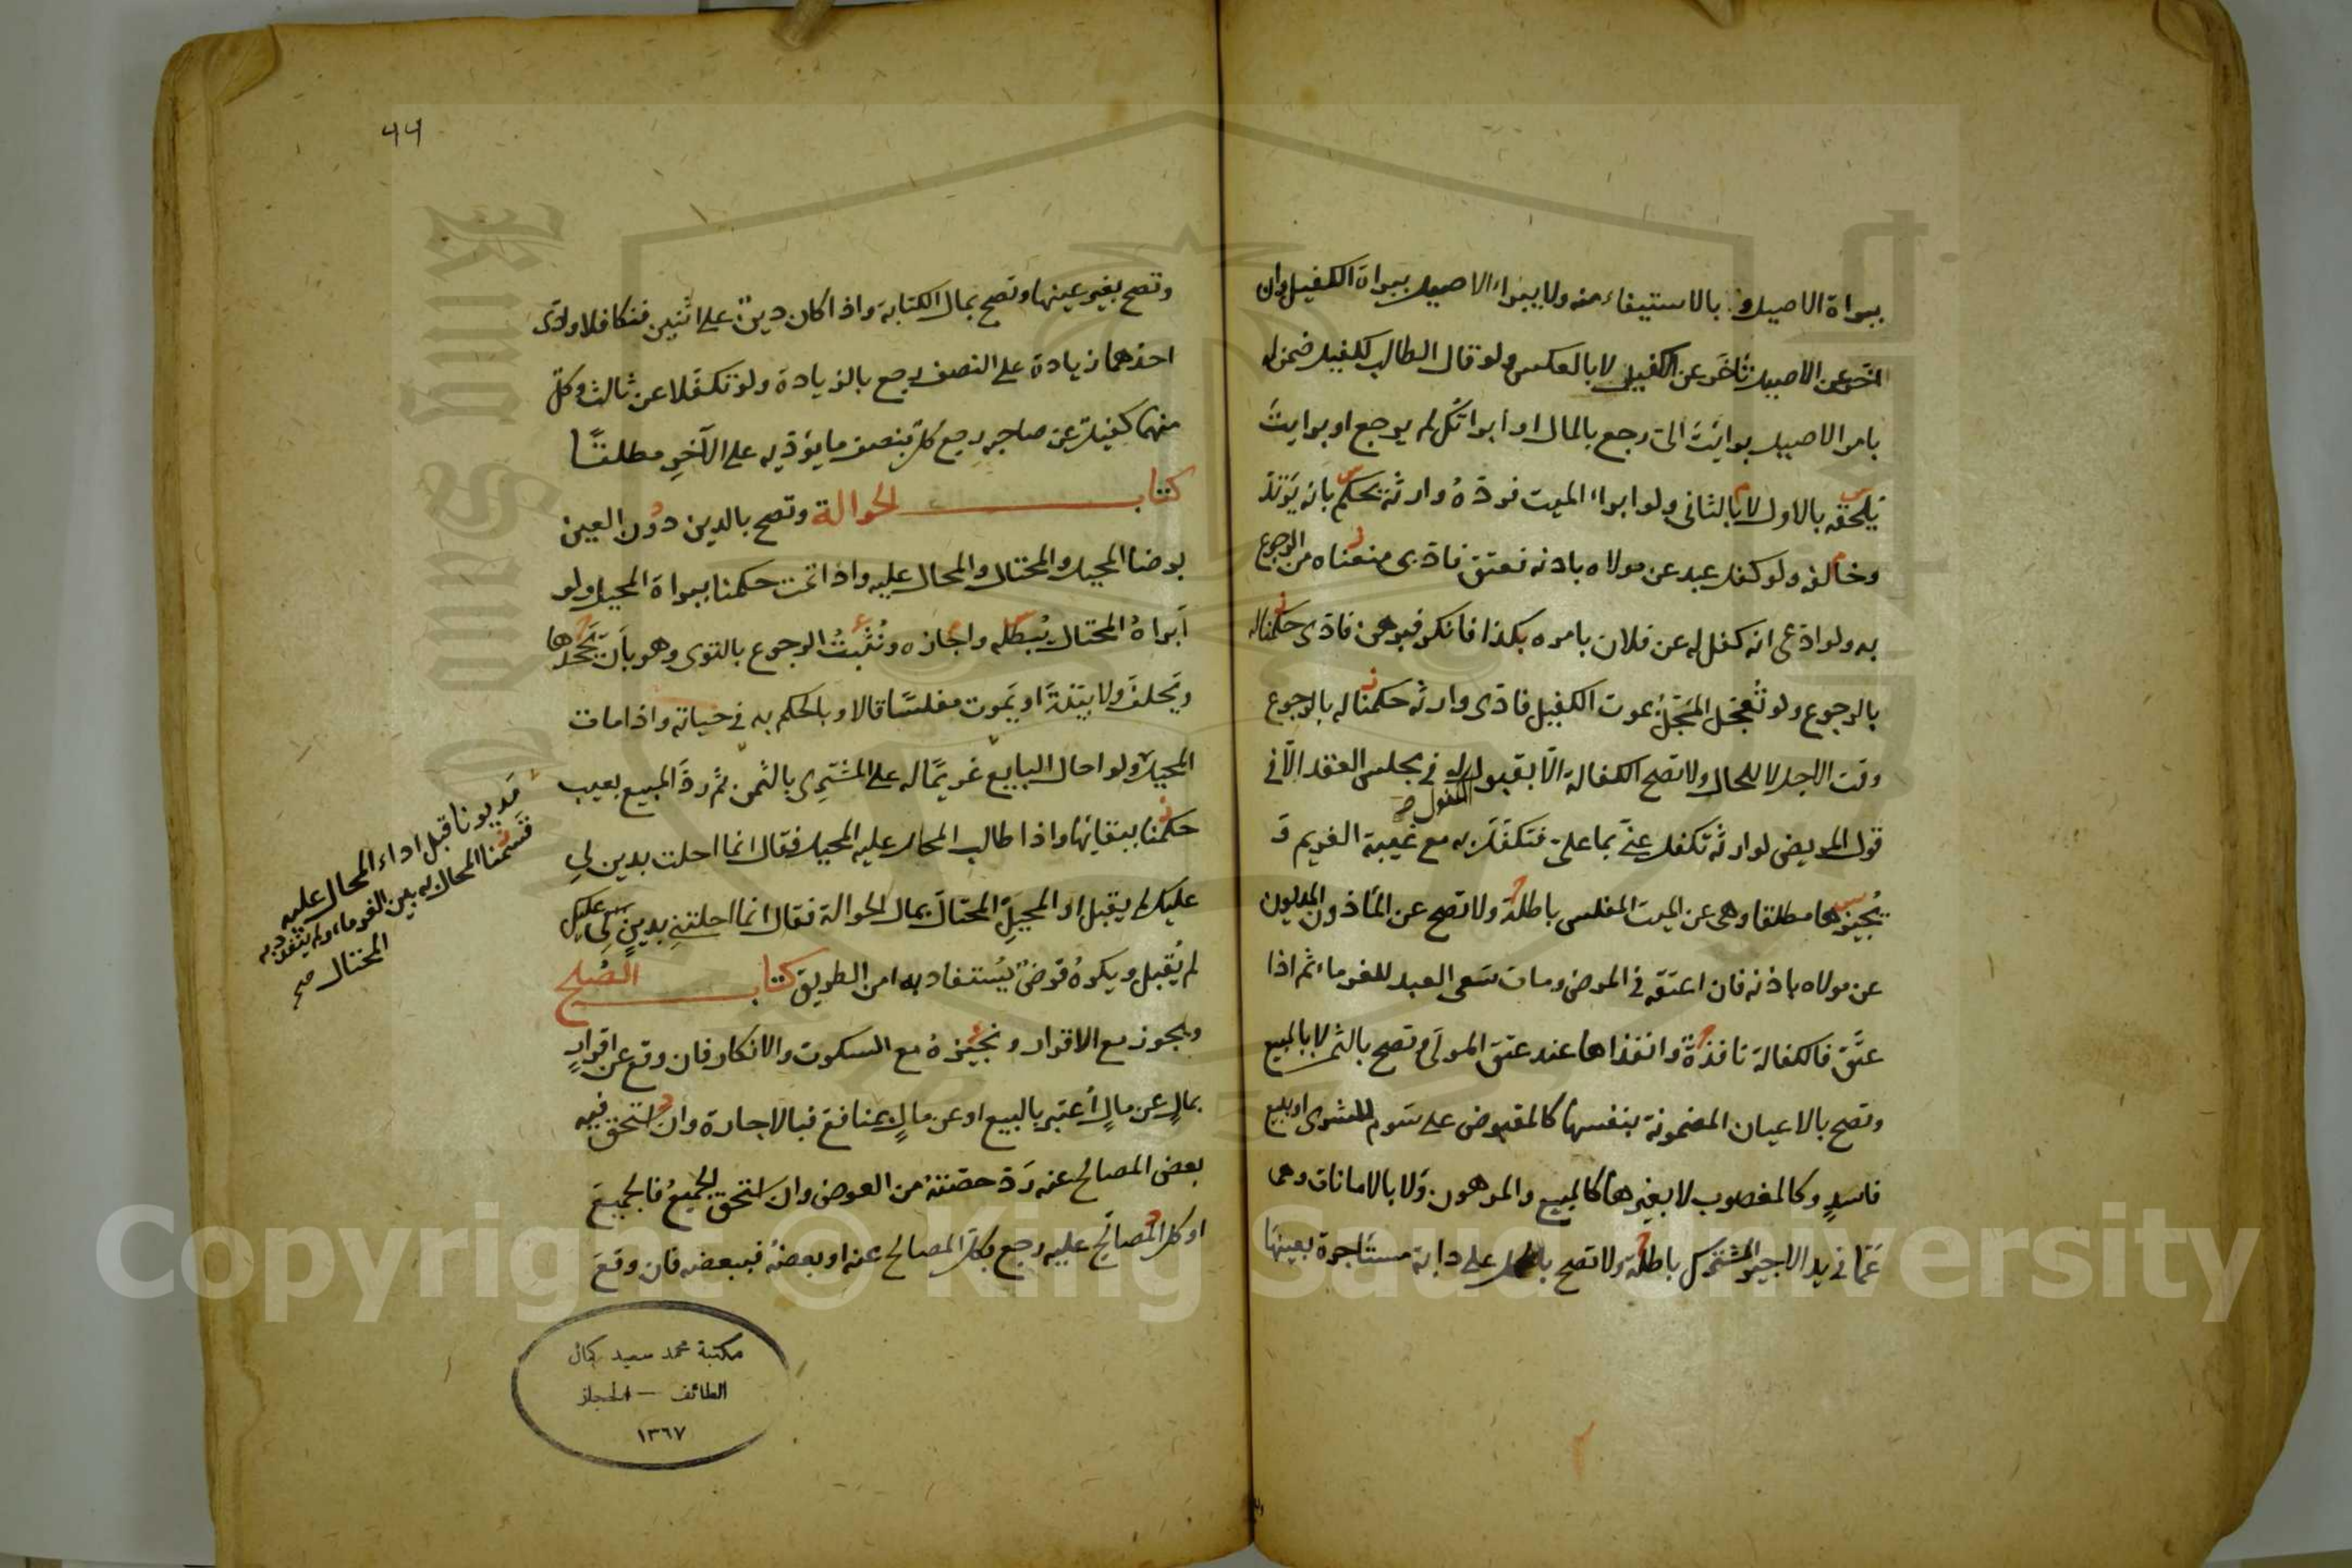 ببراة الاصيل وبالاستيفاء منه ولا يبراء الاصيل ببراة الكفيل وان
اخر عن الاصيل تاخر عن الكفيل لا بالعكس ولو قال الطالب للكفيل ضمن له
بامر الاصيل برايت الى رجع بالمال او ابراتك لم يرجع او برايت
يلحقه بالاول لا بالثانى ولو ابراء الميت فردّه وارثه يحكم بانه يرتد
وخالفه ولو كفل عبد عن مولاه باذنه فعتق فادى منعناه من الرجوع
به ولو ادعى انه كفل له عن فلان بامره بكذا فانكر فبرهن فادى حكمنا له
بالرجوع ولو تعجل المؤجل بموت الكفيل فادى وارثه حكمنا له بالرجوع
وقت الاجل لا للحال ولا تصح الكفالة الا بقبول المكفول له فى مجلس العقد الا فى
قول المريض لوارثه تكفل عنى بما على فتكفل به مع غيبة الغريم و
يجيزها مطلقا وهى عن الميت المفلس باطلة ولا تصح عن الماذون المديون
عن مولاه باذنه فان اعتقه فى المرض ومات سعى العبد للغرماء ثم اذا
عتق فالكفالة نافذة وانفذاها عند عتق المولى وتصح بالثمن لا بالمبيع
وتصح بالاعيان المضمونة بنفسها كالمقبوض على سوم الشرى او ببيع
فاسد وكالمغصوب لا بغيرها كالمبيع والمرهون ولا بالامانات وهى
عما فى يد الاجير المشترك باطلة ولا تصح بالحمل على دابة مستاجرة بعينها
٤٤
وتصح بغير عينها وتصح بمال الكتابة واذا كان دين على اثنين فتكافلا وادى
احدهما زيادة على النصف رجع بالزيادة ولو تكفلا عن ثالث وكل
منهما كفيل عن صاحبه رجع كل بنصف ما يؤديه على الآخر مطلقا
كتاب الحوالة وتصح بالدين دون العين
برضا المحيل والمحتال والمحال عليه واذا تمت حكمنا ببراة المحيل ولو
ابراه المحتال يبطله واجازه ونثبت الرجوع بالتوى وهو بان يجحدها
ويحلف ولا بينة او يموت مفلسا قالا وبالحكم به فى حياته واذا مات
المحيل ولو احال البايع غريما له على المشترى بالثمن ثم رد المبيع بعيب
حكمنا ببقائها واذا طالب المحال عليه المحيل فقال انما احلت بدين لى
عليك لم يقبل او المحيل المحتال بمال الحوالة فقال انما احلتنى بدين لى عليك
لم يقبل ويكره قرض يستفاد به امن الطريق كتاب الصلح
ويجوز مع الاقرار ونجيزه مع السكوت والانكار فان وقع عن اقرار
بمال عن مال اعتبر بالبيع او عن مال بمنافع فبالاجارة وان استحق فيه
بعض المصالح عنه رد حصته من العوض وان استحق الجميع فالجميع
او كل المصالح عليه رجع بكل المصالح عنه او بعضه فببعضه فان وقع
مديونا قبل اداء المحال عليه
قسمنا المحال به بين الغرماء ولم يتفرد به
المحتال صح
مكتبة محمد سعيد كمال
الطائف - الحجاز
١٣٦٧
Copyright © King Saud University